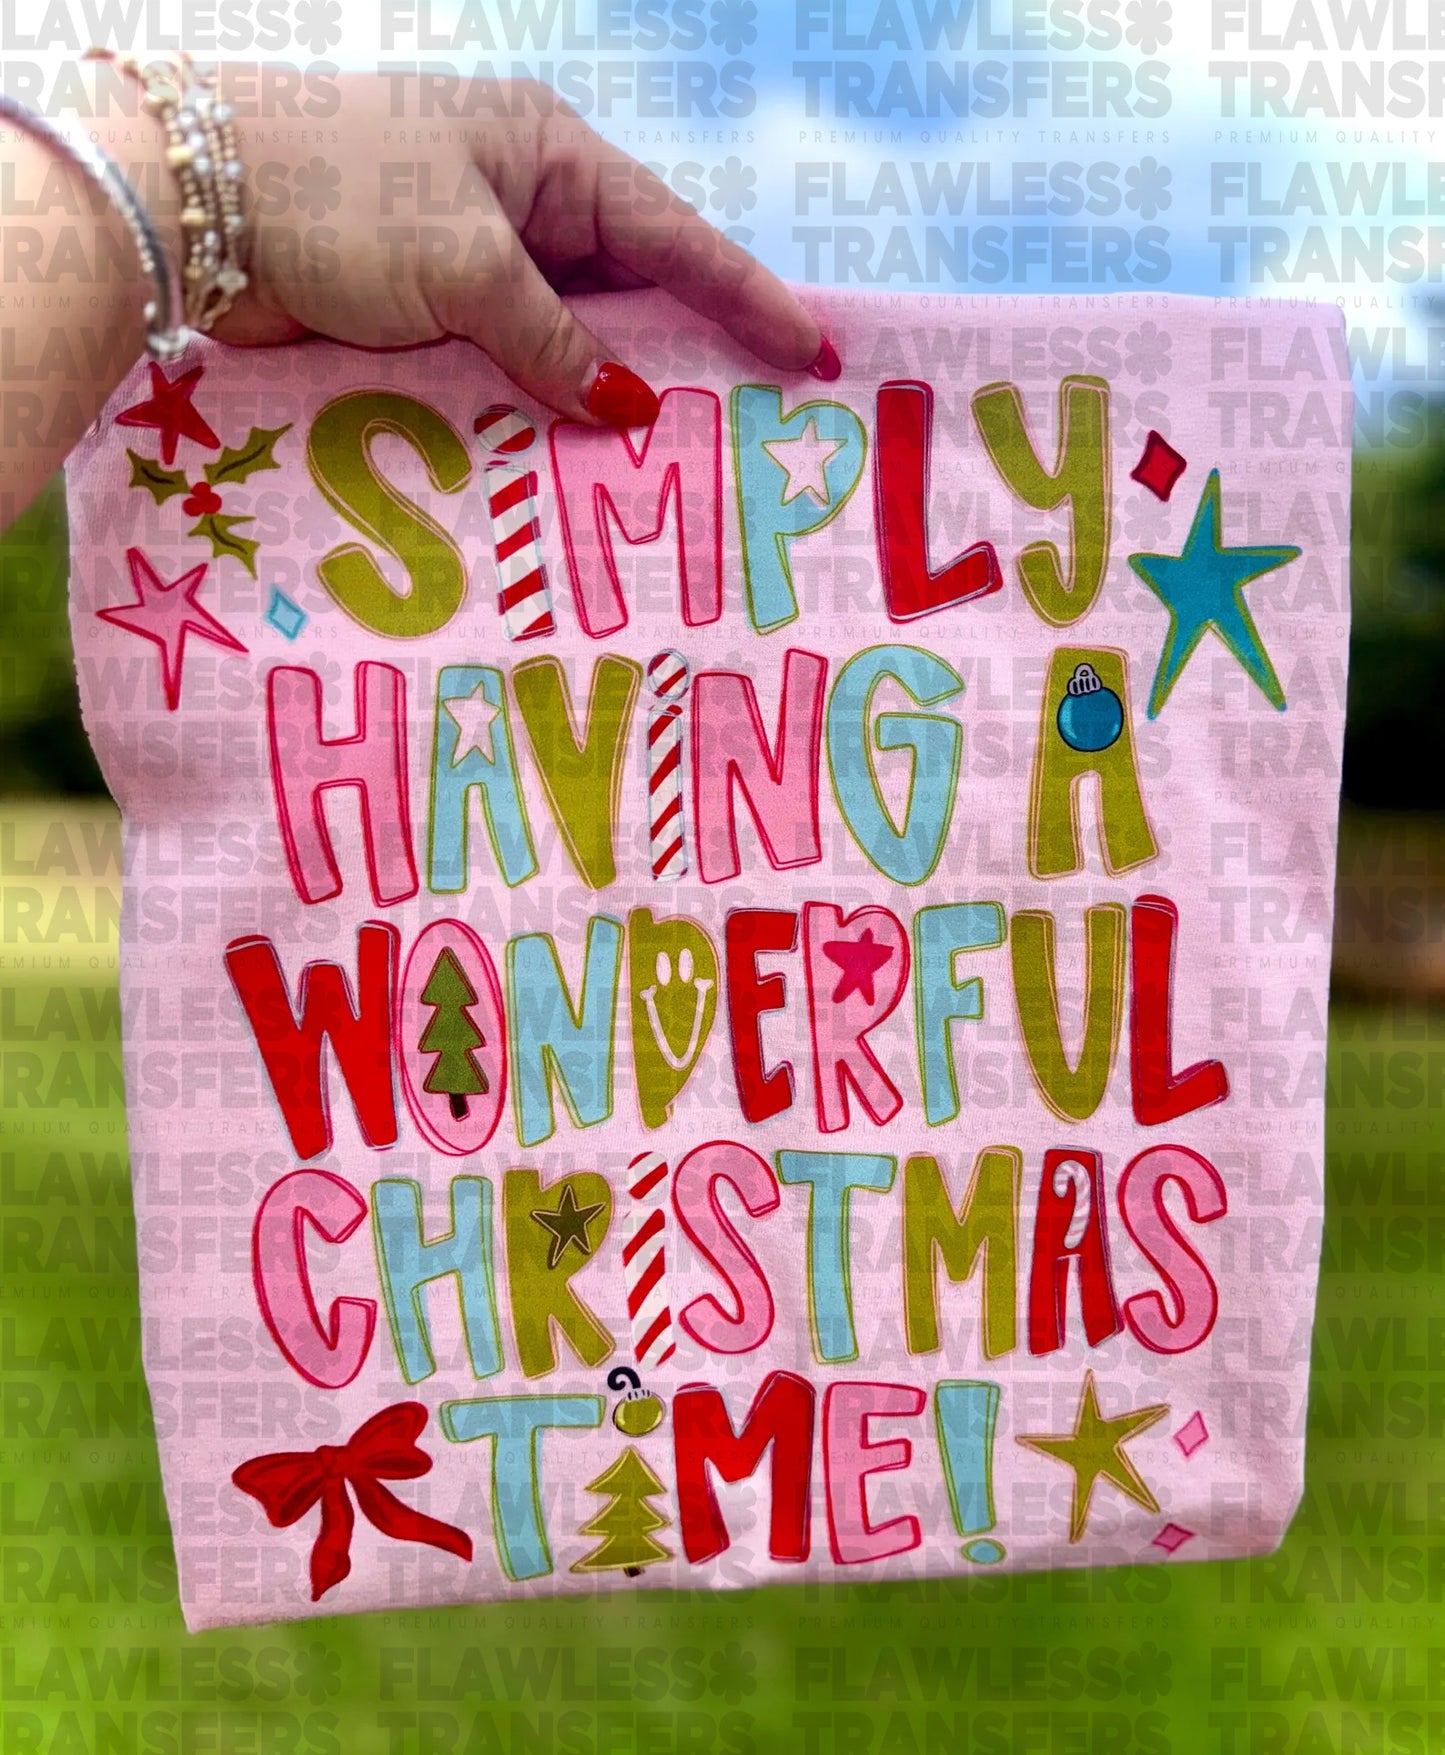 SiMPLY
HAViNG A
WONDERFUL
CHRiSTMAS
TiME!
FLAWLESS
TRANSFERS
PREMIUM QUALITY TRANSFERS